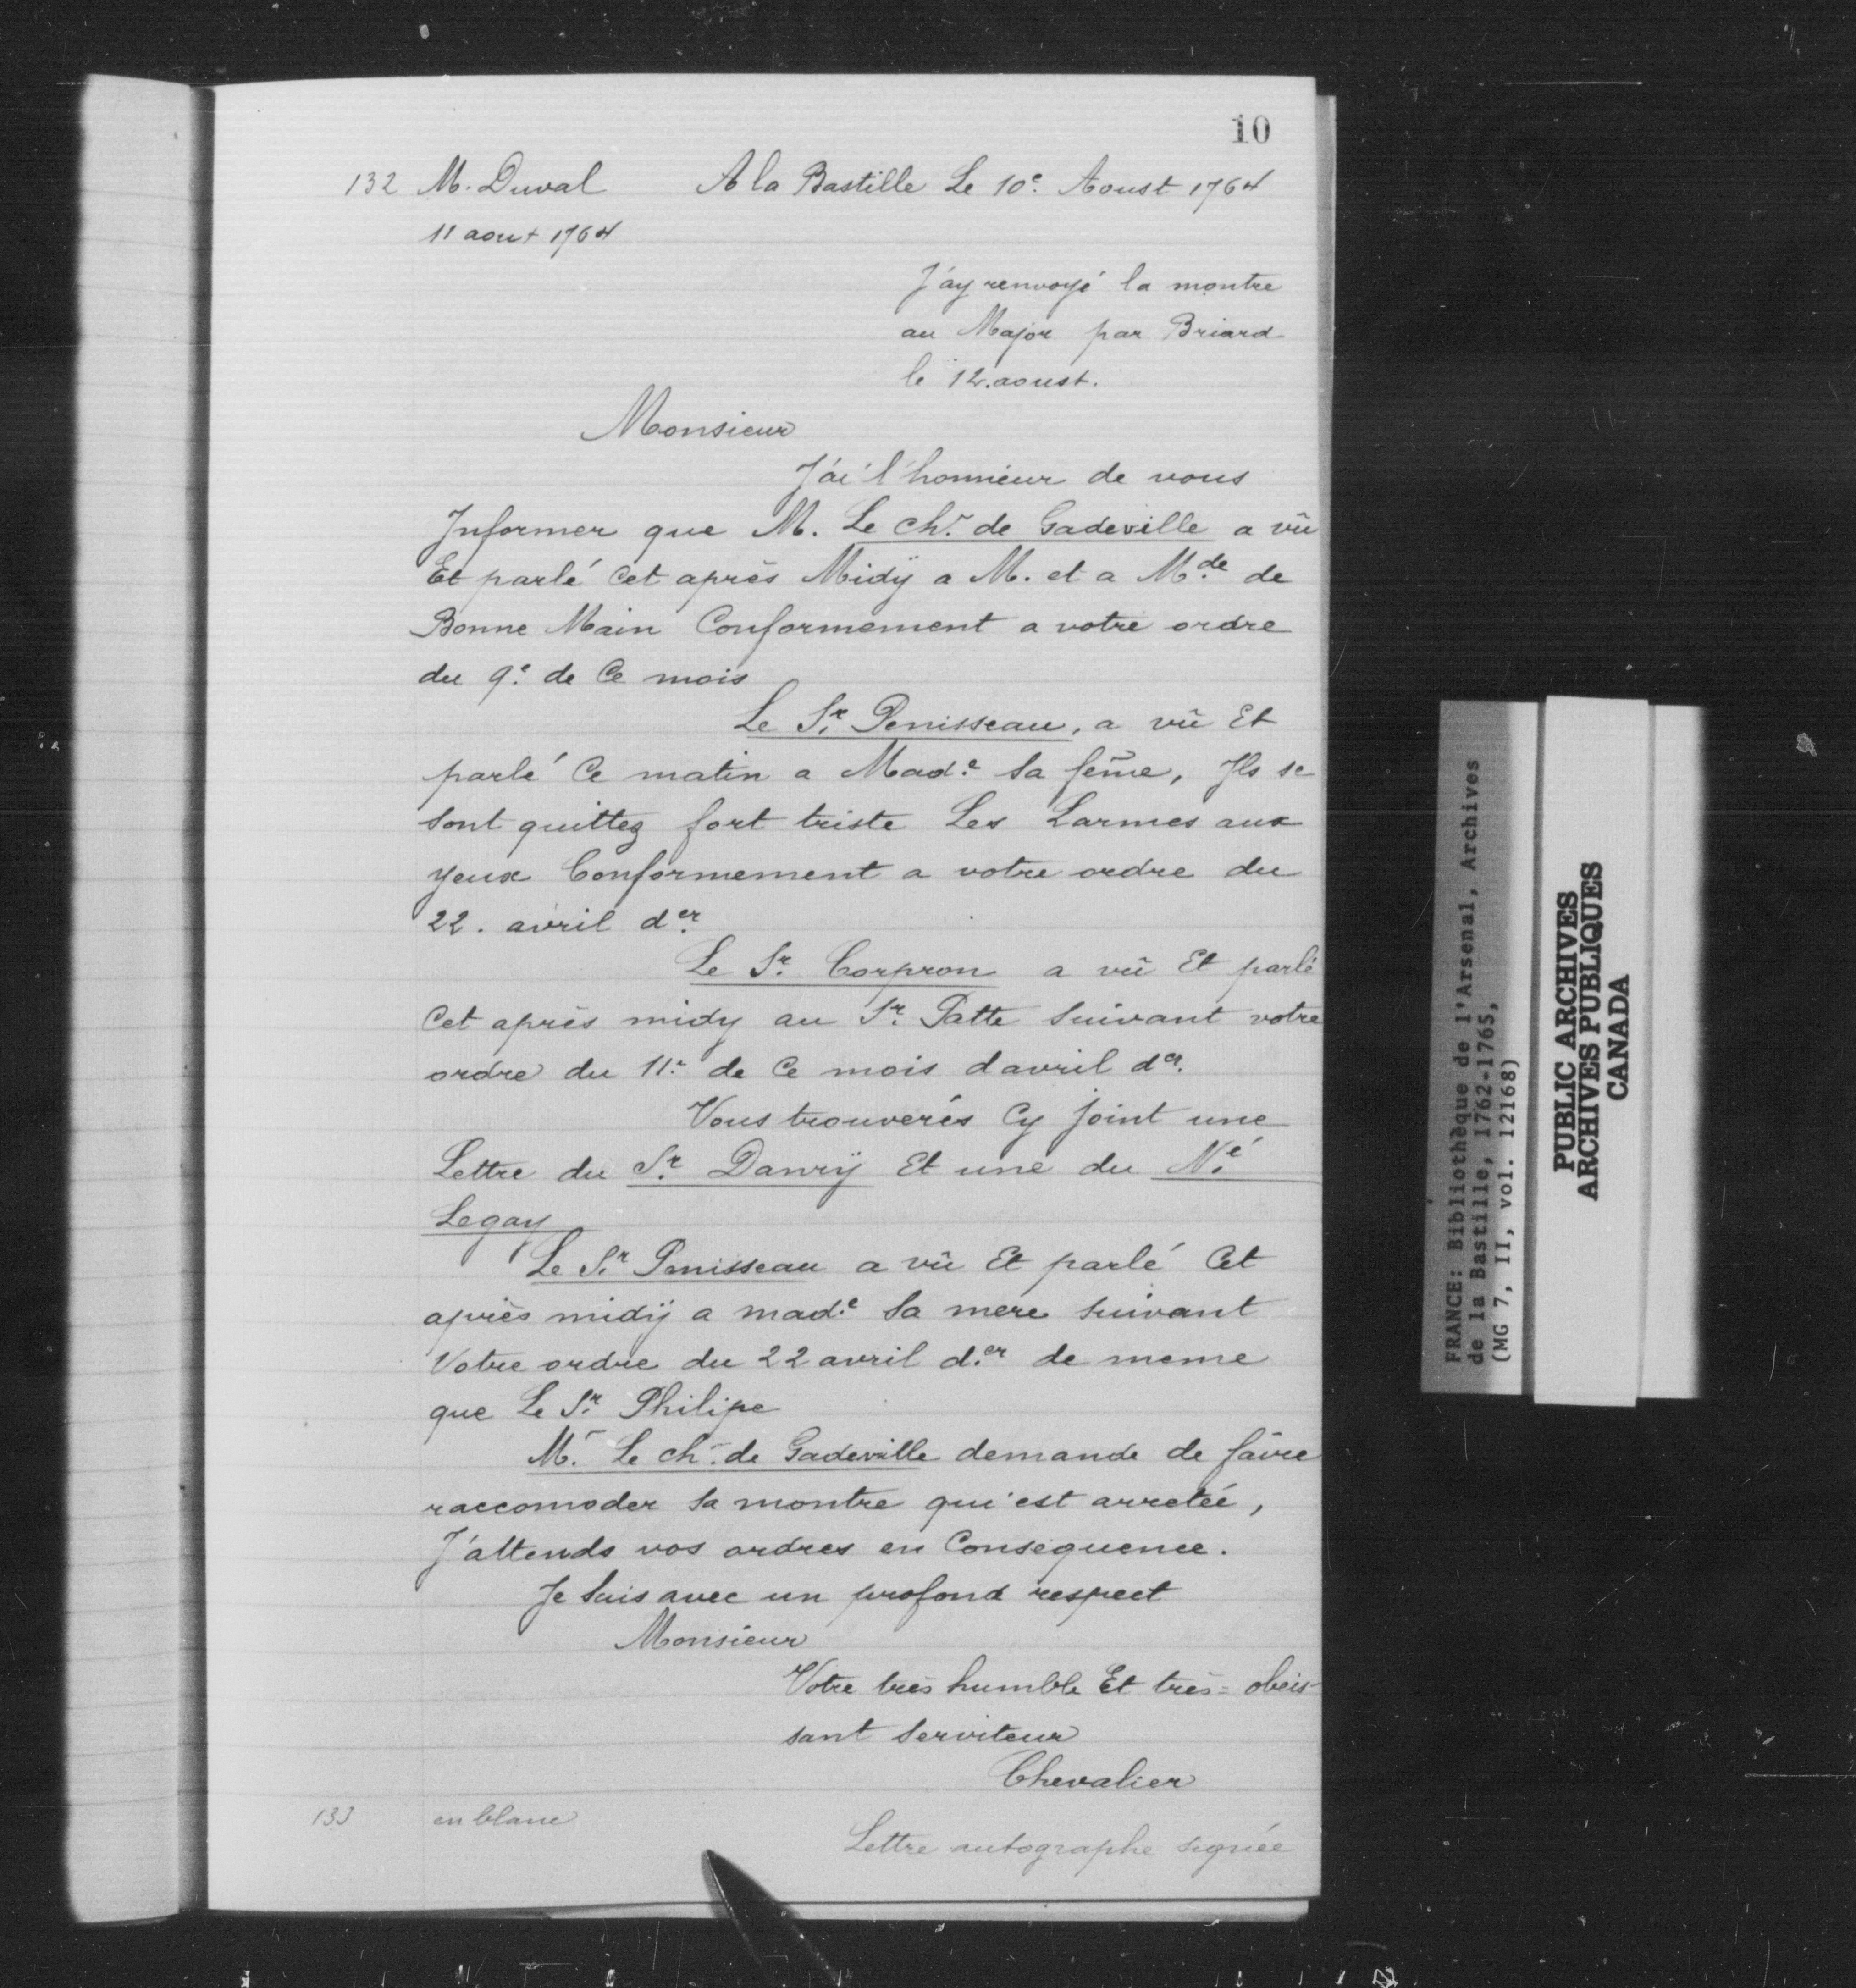 10
132 M. Duval A la Bastille Le 10e. Aoust 1764
11 aout 1764
J'ay renvoyé la montre
au Major par Briard
le 12. aoust.
Monsieur
J'ai l'honnieur de vous
Informer que M. Le chr. de Gadeville a vû
Et parlé Cet après Midÿ a M. et a Mde. de
Bonne Main Conformement a votre ordre
du 9e. de Ce mois
Le Sr. Penisseau, a vû Et
parlé Ce matin a Made. Sa fême, Ils se
Sont quittez fort triste Les Larmes aux
yeux Conformement a votre ordre du
22. avril der.
Le Sr. Corpron a vû Et parlé
Cet après midy au Sr. Patte Suivant votre
ordre du 11e. de Ce mois davril der.
Vous trouverés Cy joint une
Lettre du Sr. Danrÿ Et une du Né.
Legay
Le Sr. Penisseau a vû Et parlé Cet
après midÿ a made. Sa mere Suivant
Votre ordre du 22 avril der. de meme
que Le Sr. Philipe
Mr. Le chr. de Gadeville demande de faire
raccomoder Sa montre qui est arretée,
J'attends vos ordres en Consequence.
Je Suis avec un profond respect
Monsieur
Votre très humble Et très=obeis-
sant Serviteur
Chevalier
133 en blanc
Lettre autographe signée
FRANCE: Bibliothèque de l'Arsenal, Archives
de la Bastille, 1762-1765,
(MG 7, II, vol. 12168)
PUBLIC ARCHIVES
ARCHIVES PUBLIQUES
CANADA